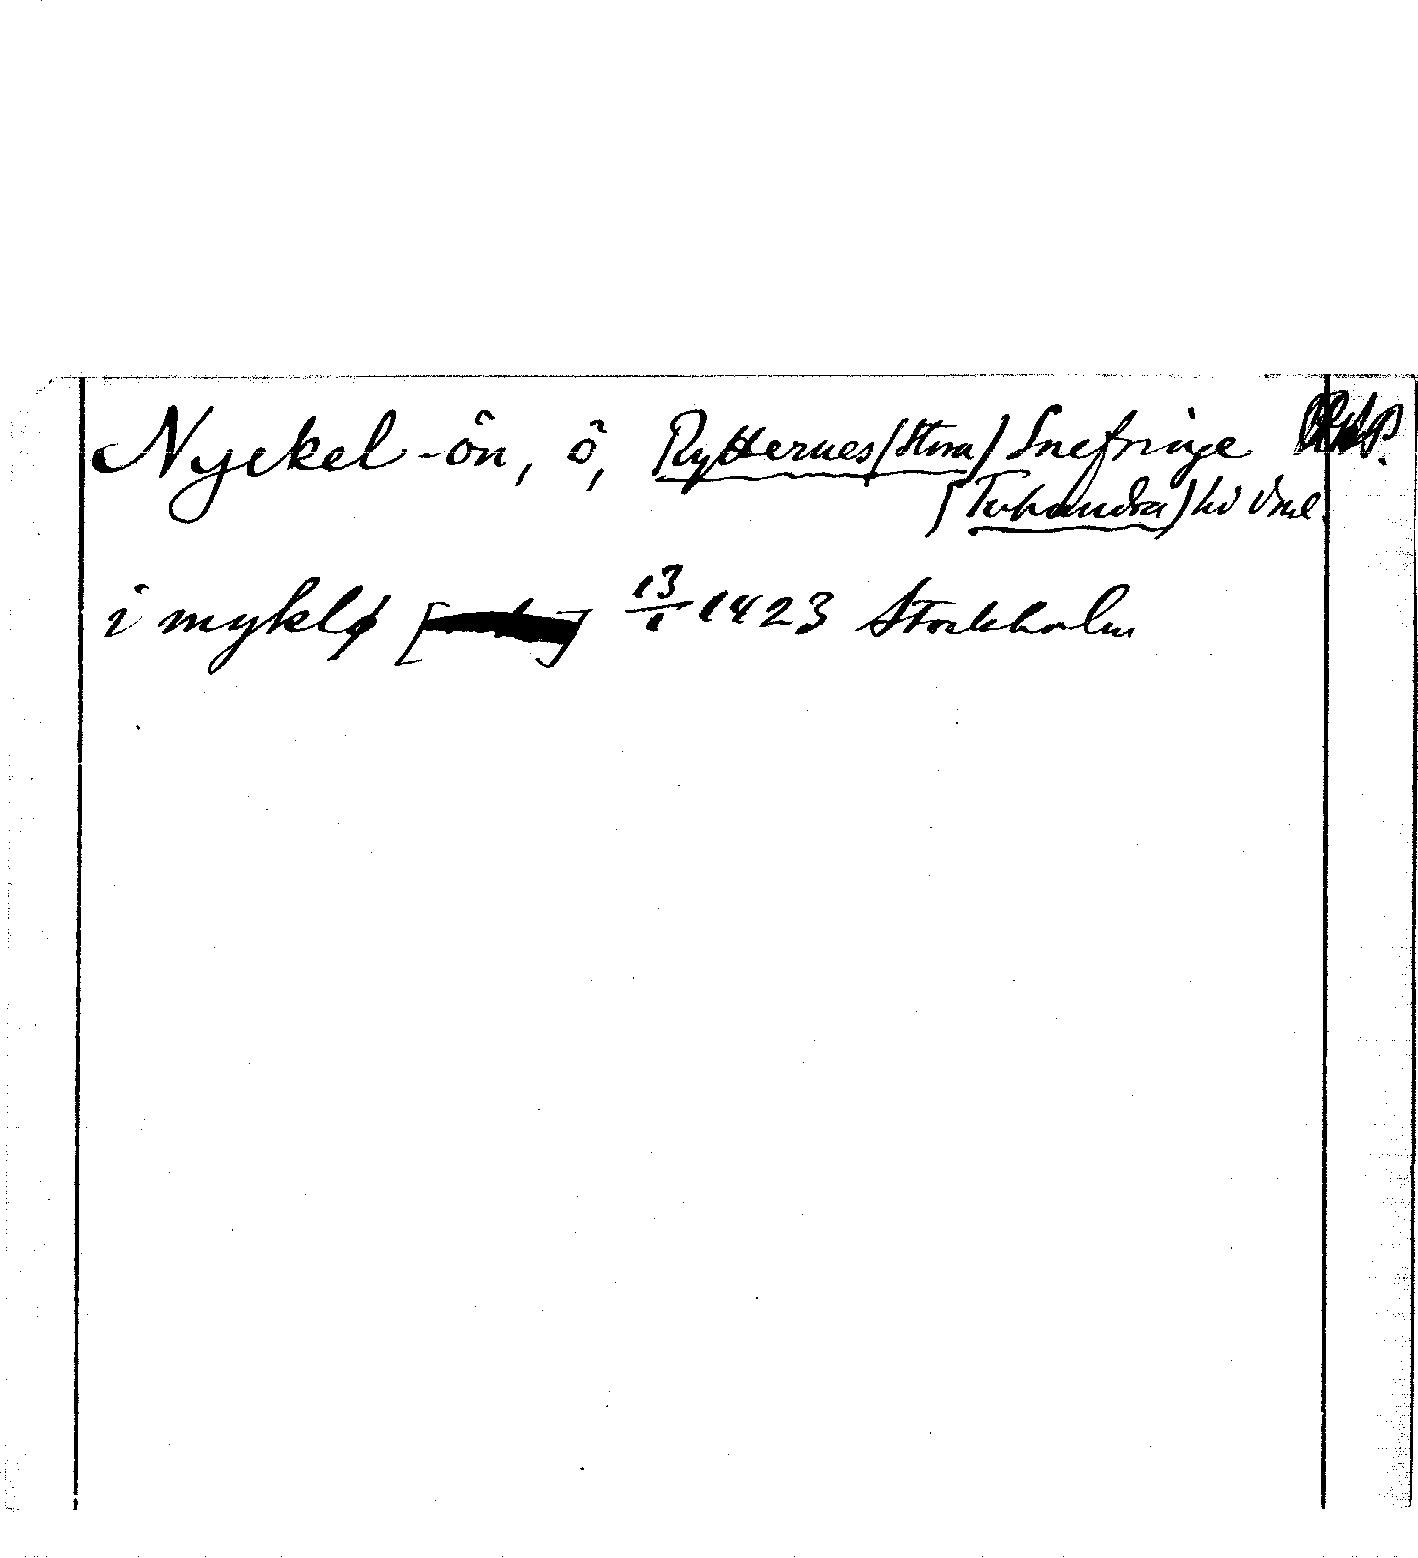 Nyckel-ön, ö, Rytternes (Stora) Snefringe
(Tuhundra) hd Vsml.
i myklø [ ] 13/1 1423 Stockholm